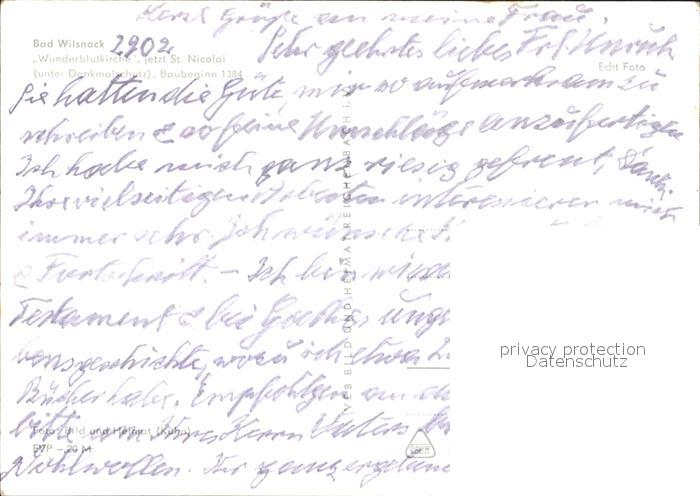 Herzl Grüße an meine Frau.
Bad Wilsnack 2902
„Wunderblutkirche", jetzt St. Nicolai
(unter Denkmalschutz), Baubeginn 1384
Sehr geehrtes liebes Frl.
Echt Foto
Sie hatten die Güte, mir so aufmerksam zu
schreiben & so feine Umschläge anzufertigen
Ich habe mich ganz riesig gefreut, Dank.
Ihre vielseitigen Arbeiten interessieren mich
immer sehr. Ich wünsche
& Fortschritt. – Ich bin wieder
Testament & bei Goethes
bensgeschichte, wozu ich etwa
Bücher habe. Empfehlgen an
bitte um Ihres Herrn Vaters
Wohlwollen. Ihr ganz
VEB BILD UND HEIMAT REICHENBACH i. V.
Foto: Bild und Heimat (Kühn)
EVP – 20 M
privacy protection
Datenschutz